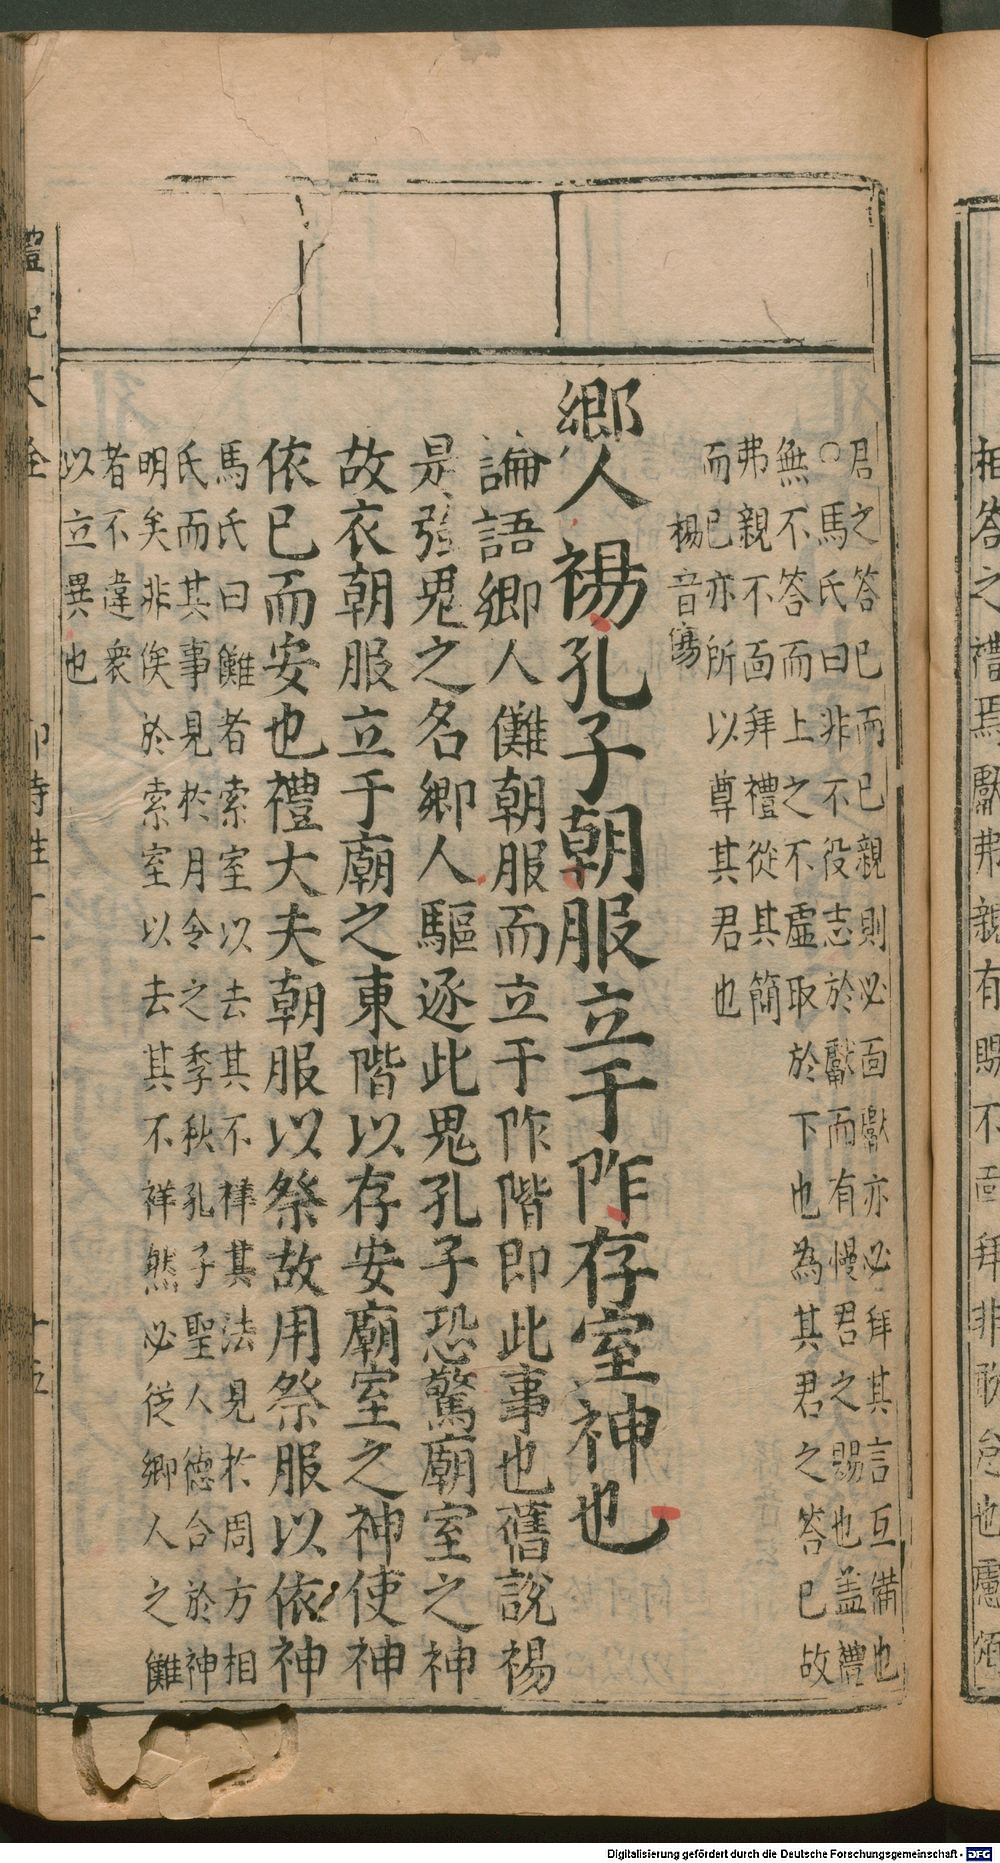 君之答己而己親則必面獻亦必拜其言互備也
○馬氏曰非不役志於獻而有慢君之賜也盖禮
無不答而上之不虛取於下也為其君之答已故
弗親不面拜禮從其簡
而已亦所以尊其君也
禓音傷
鄉人禓孔子朝服立于阼存室神也
論語鄉人儺朝服而立于阼階即此事也舊說禓
是強鬼之名鄉人驅逐此鬼孔子恐驚廟室之神
故衣朝服立于廟之東階以存安廟室之神使神
依已而安也禮大夫朝服以祭故用祭服以依神
馬氏曰儺者索室以去其不祥其法見於周方相
氏而其事見於月令之季秋孔子聖人德合於神
明矣非俟於索室以去其不祥然必從鄉人之儺
者不違衆
以立異也
禮記大全
郊特牲十一
十五
相答之禮焉獻弗親有賜不面拜非敢怠也慮煩
Digitalisierung gefördert durch die Deutsche Forschungsgemeinschaft - DFG